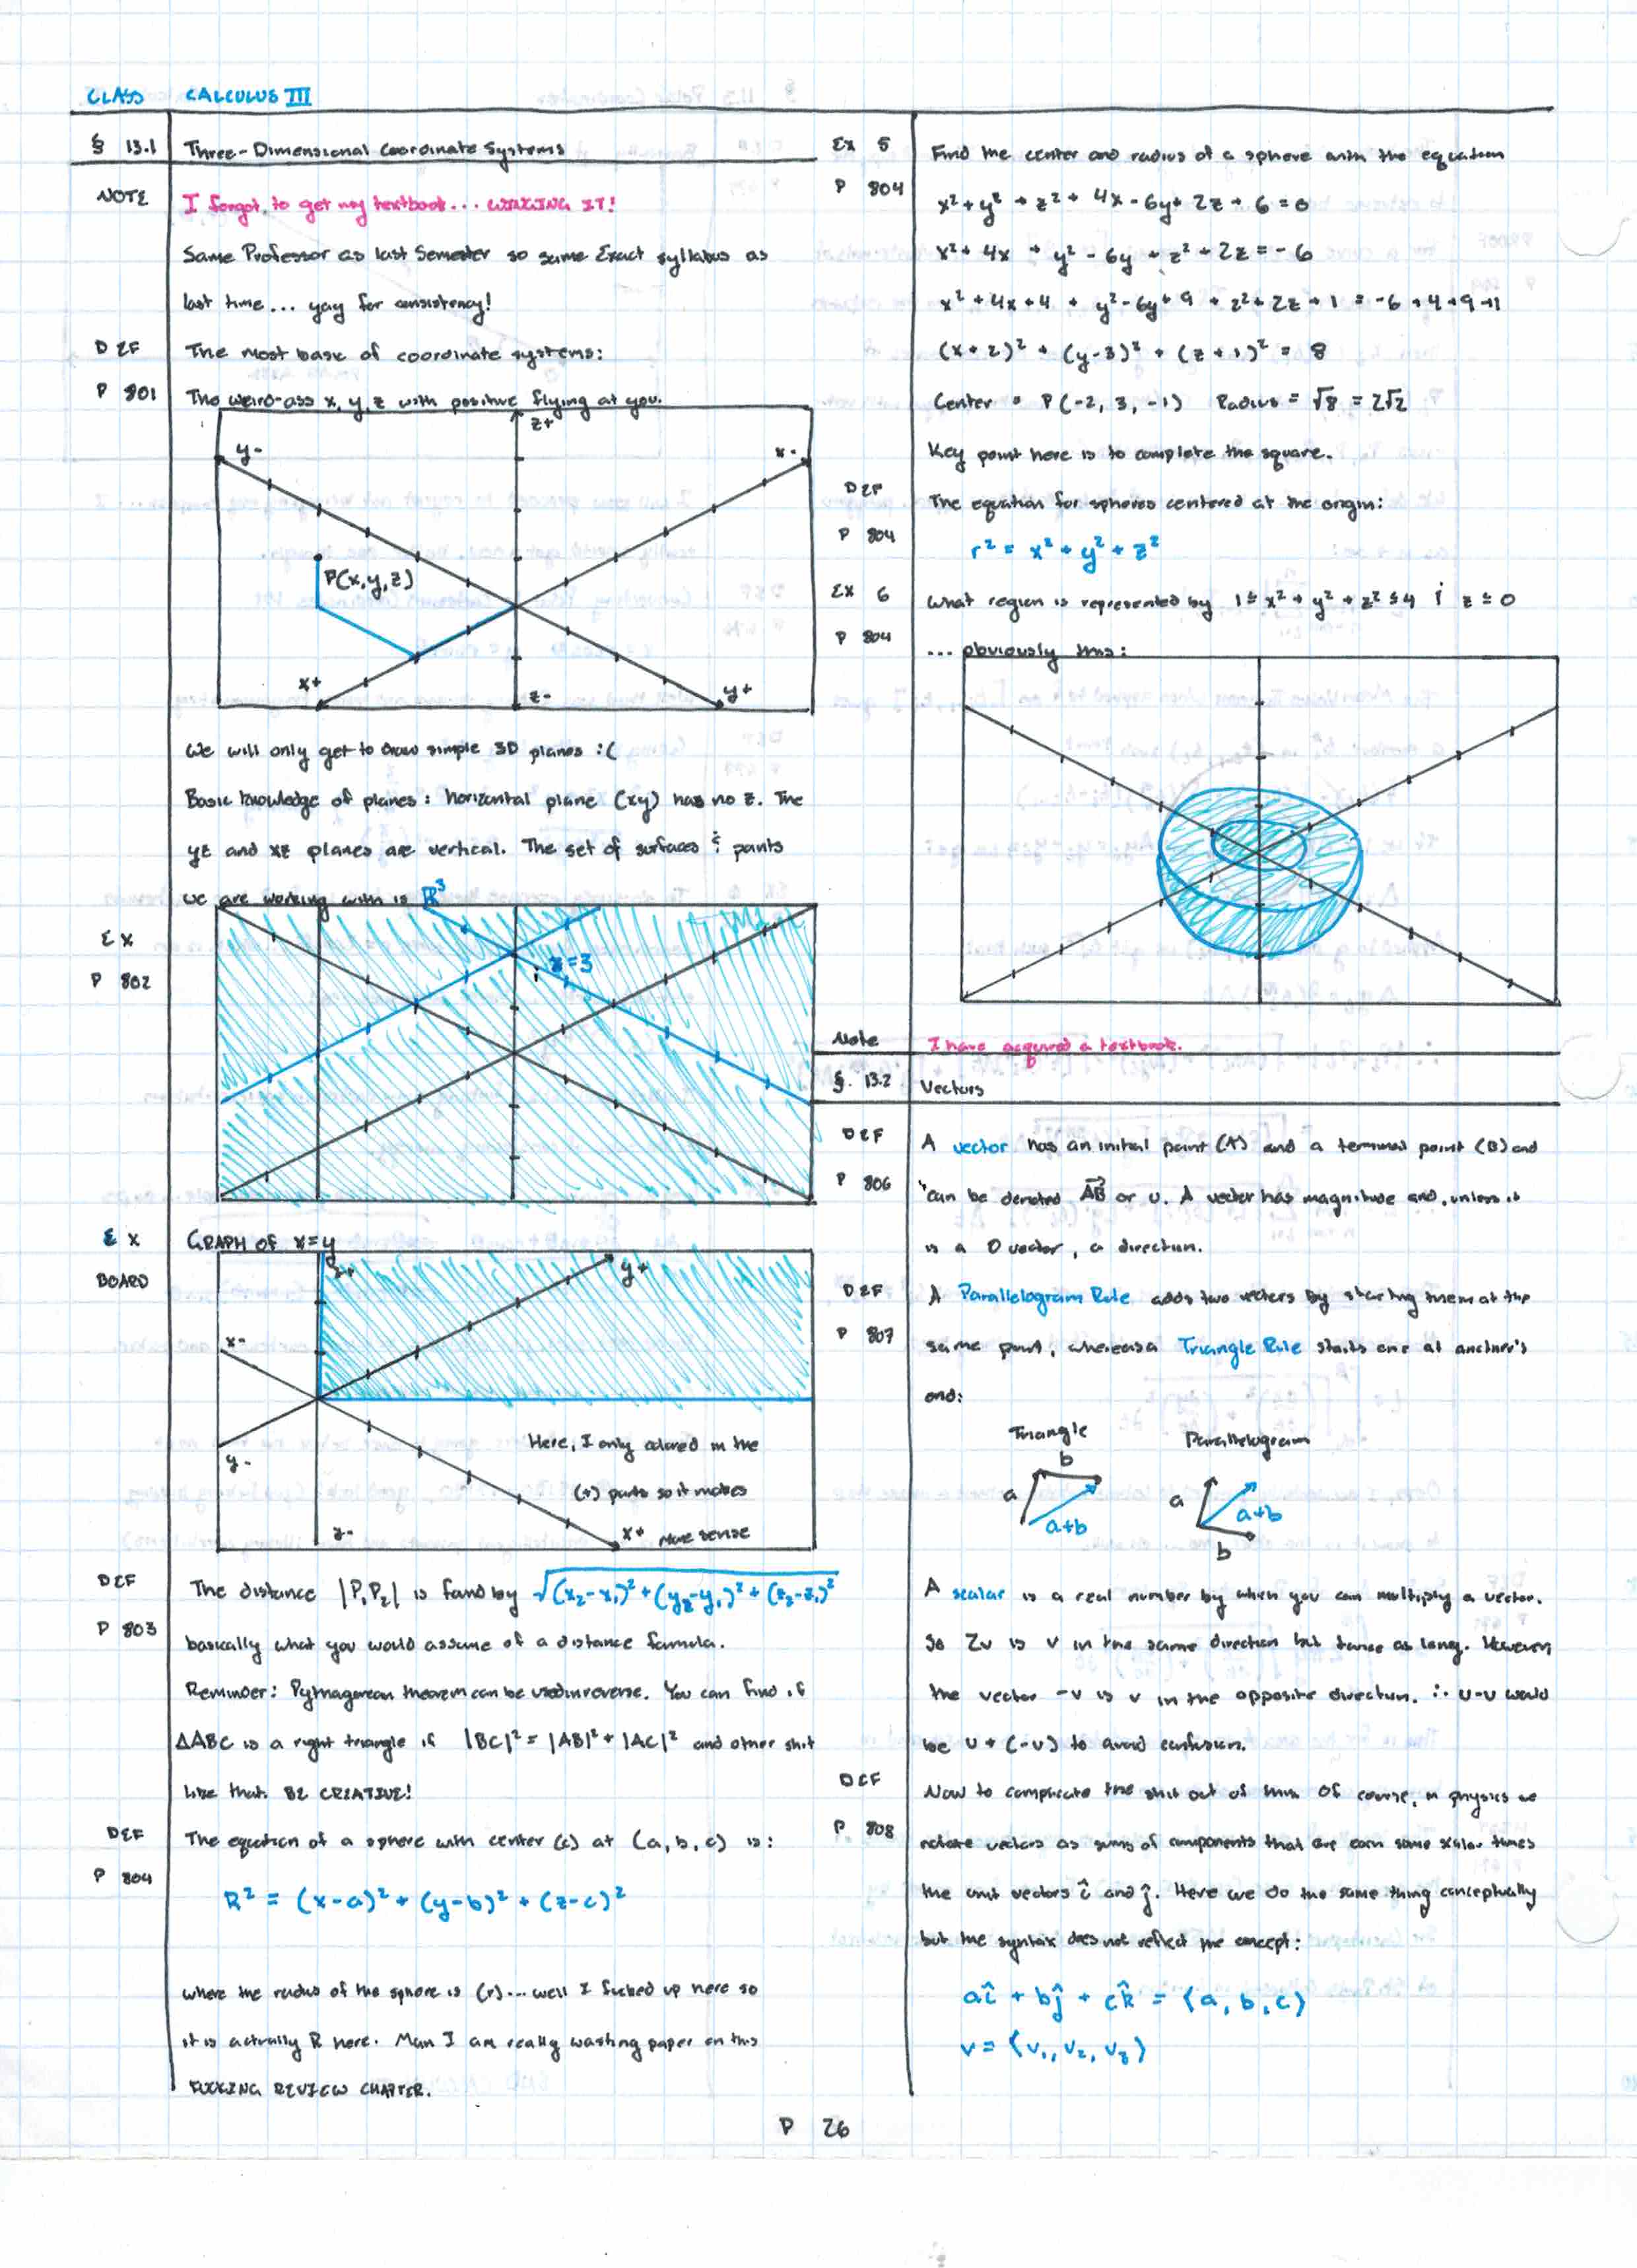 CLASS CALCULUS III
§ 13.1 Three-Dimensional Coordinate Systems
NOTE I forgot to get my textbook... WINGING IT!
Same Professor as last semester so same Exact syllabus as
last time... yay for consistency!
DEF The most basic of coordinate systems:
P 801 The weird-ass x, y, z with positive flying at you.
z+
y-
x-
P(x,y,z)
x+
z-
y+
We will only get to draw simple 3D planes :(
Basic knowledge of planes: horizontal plane (xy) has no z. The
yz and xz planes are vertical. The set of surfaces & points
we are working with is ℝ³
EX
P 802
z=3
EX GRAPH OF x=y
BOARD
z+
y+
x-
y-
Here, I only colored in the
(+) parts so it makes
z-
x+ more sense
DEF The distance |P₁P₂| is found by √(x₂-x₁)²+(y₂-y₁)²+(z₂-z₁)²
P 803 basically what you would assume of a distance formula.
Reminder: Pythagorean theorem can be used in reverse. You can find if
ΔABC is a right triangle if |BC|² = |AB|² + |AC|² and other shit
like that. BE CREATIVE!
DEF The equation of a sphere with center (c) at (a, b, c) is:
P 804
R² = (x-a)² + (y-b)² + (z-c)²
where the radius of the sphere is (r)... well I fucked up here so
it is actually R here. Man I am really wasting paper on this
FUCKING REVIEW CHAPTER.
Ex 5 Find the center and radius of a sphere with the equation
P 804 x²+y²+z²+4x-6y+2z+6=0
x²+4x + y²-6y + z²+2z = -6
x²+4x+4 + y²-6y+9 + z²+2z+1 = -6+4+9+1
(x+2)² + (y-3)² + (z+1)² = 8
Center = P(-2, 3, -1) Radius = √8 = 2√2
Key point here is to complete the square.
DEF The equation for spheres centered at the origin:
P 804 r² = x² + y² + z²
Ex 6 What region is represented by 1≤x²+y²+z²≤4 & z≤0
P 804 ... obviously this:
Note I have acquired a textbook.
§. 13.2 Vectors
DEF A vector has an initial point (A) and a terminal point (B) and
P 806 can be denoted AB⃗ or u. A vector has magnitude and, unless it
is a 0 vector, a direction.
DEF A Parallelogram Rule adds two vectors by starting them at the
P 807 same point, whereas a Triangle Rule starts one at another's
end:
Triangle Parallelogram
b
a
a+b
a
a+b
b
A scalar is a real number by which you can multiply a vector.
So 2v is v in the same direction but twice as long. However
the vector -v is v in the opposite direction. ∴ u-v would
be u + (-v) to avoid confusion.
DEF Now to complicate the shit out of this. Of course, in physics we
P. 808 notate vectors as sums of components that are each some scalar times
the unit vectors î and ĵ. Here we do the same thing conceptually
but the syntax does not reflect the concept:
aî + bĵ + ck̂ = ⟨a, b, c⟩
v = ⟨v₁, v₂, v₃⟩
P 26